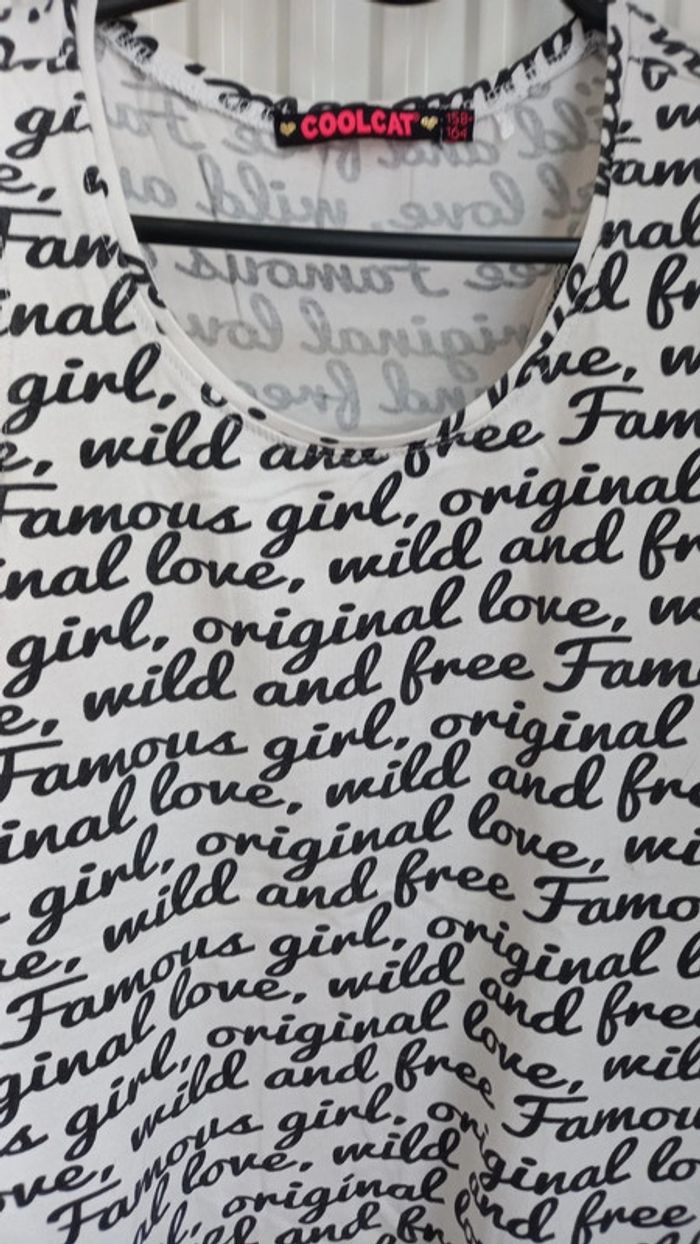 COOLCAT
158-
164
girl,
wild and free Fam
Famous girl, original
inal love, wild and fr
girl, original love, w
e, wild and free Fam
Famous girl, original
inal love, wild and fre
girl, original love, wi
e, wild and free Famo
Famous girl, original l
ginal love, wild and free
s girl, original love, wil
ove, wild and free Famou
Famous girl, original lo
al love, wild and free
l, original lo
and fr